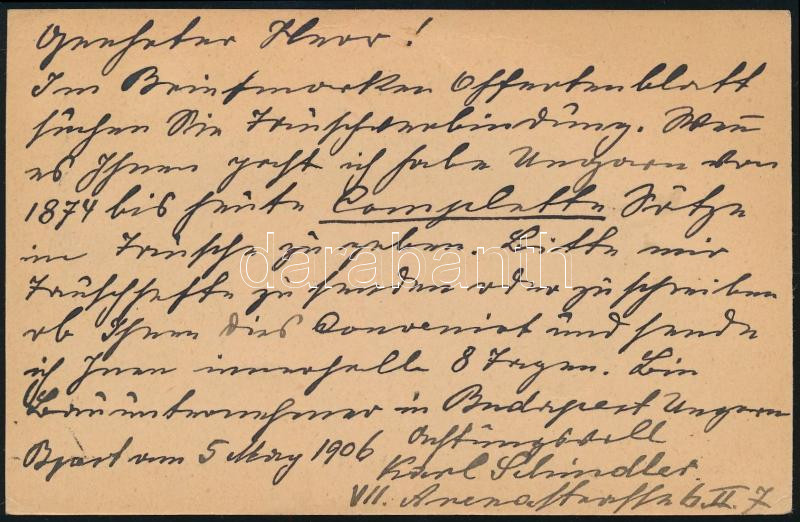 Geehrter Herr!
Im Briefmarken Offertenblatt
suchen Sie Tauschverbindung. Wenn
es Ihnen recht ich habe Ungarn von
1874 bis heute Complette Sätze
im Tausche zu geben. Bitte mir
Tauschhefte zu senden oder zu schreiben
ob Ihnen dies Convenirt und sende
ich Inen innerhalb 8 Tagen. Bin
Bauunternehmer in Budapest Ungarn
Bpest am 5 May 1906
Achtungsvoll
Karl Schindler
VII. Arenastrasse 6. II. 7
darabanth